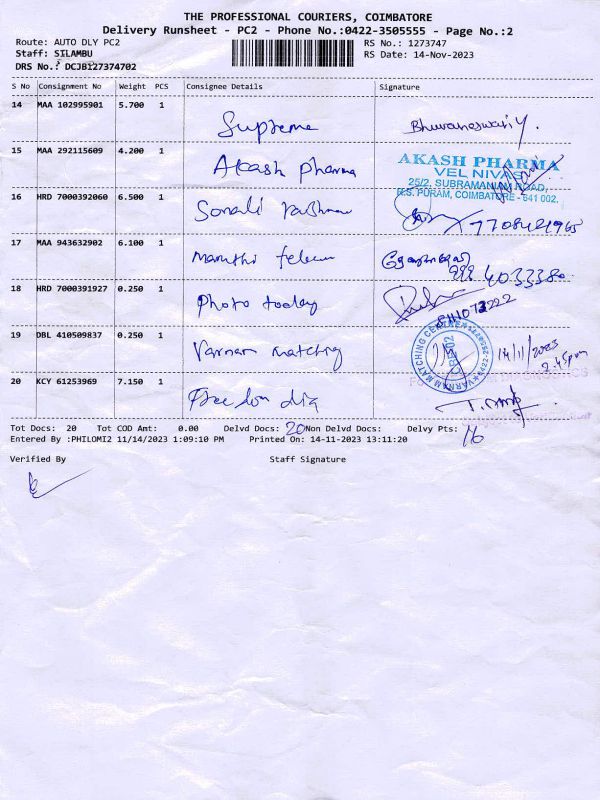 THE PROFESSIONAL COURIERS, COIMBATORE
Delivery Runsheet - PC2 - Phone No.:0422-3505555 - Page No.:2
Route: AUTO DLY PC2 RS No.: 1273747
Staff: SILAMBU RS Date: 14-Nov-2023
DRS No.: DCJB127374702
S No Consignment No Weight PCS Consignee Details Signature
14 MAA 102995901 5.700 1 Supreme Bhuvaneswari Y.
15 MAA 292115609 4.200 1 Akash pharma
AKASH PHARMA
VEL NIVAS
25/2, SUBRAMANIAM ROAD,
R.S. PURAM, COIMBATORE - 641 002.
16 HRD 7000392060 6.500 1 Sonali 7708421965
17 MAA 943632902 6.100 1 Maruthi telecom
4033380
18 HRD 7000391927 0.250 1 photo today
19 DBL 410509837 0.250 1 Varnam matching
VARNAM MATCHING CENTRE
14/11/2023
2.45pm
20 KCY 61253969 7.150 1 Freedom dig
Tot Docs: 20 Tot COD Amt: 0.00 Delvd Docs: 20 Non Delvd Docs: Delvy Pts: 16
Entered By :PHILOMI2 11/14/2023 1:09:10 PM Printed On: 14-11-2023 13:11:20
Verified By Staff Signature